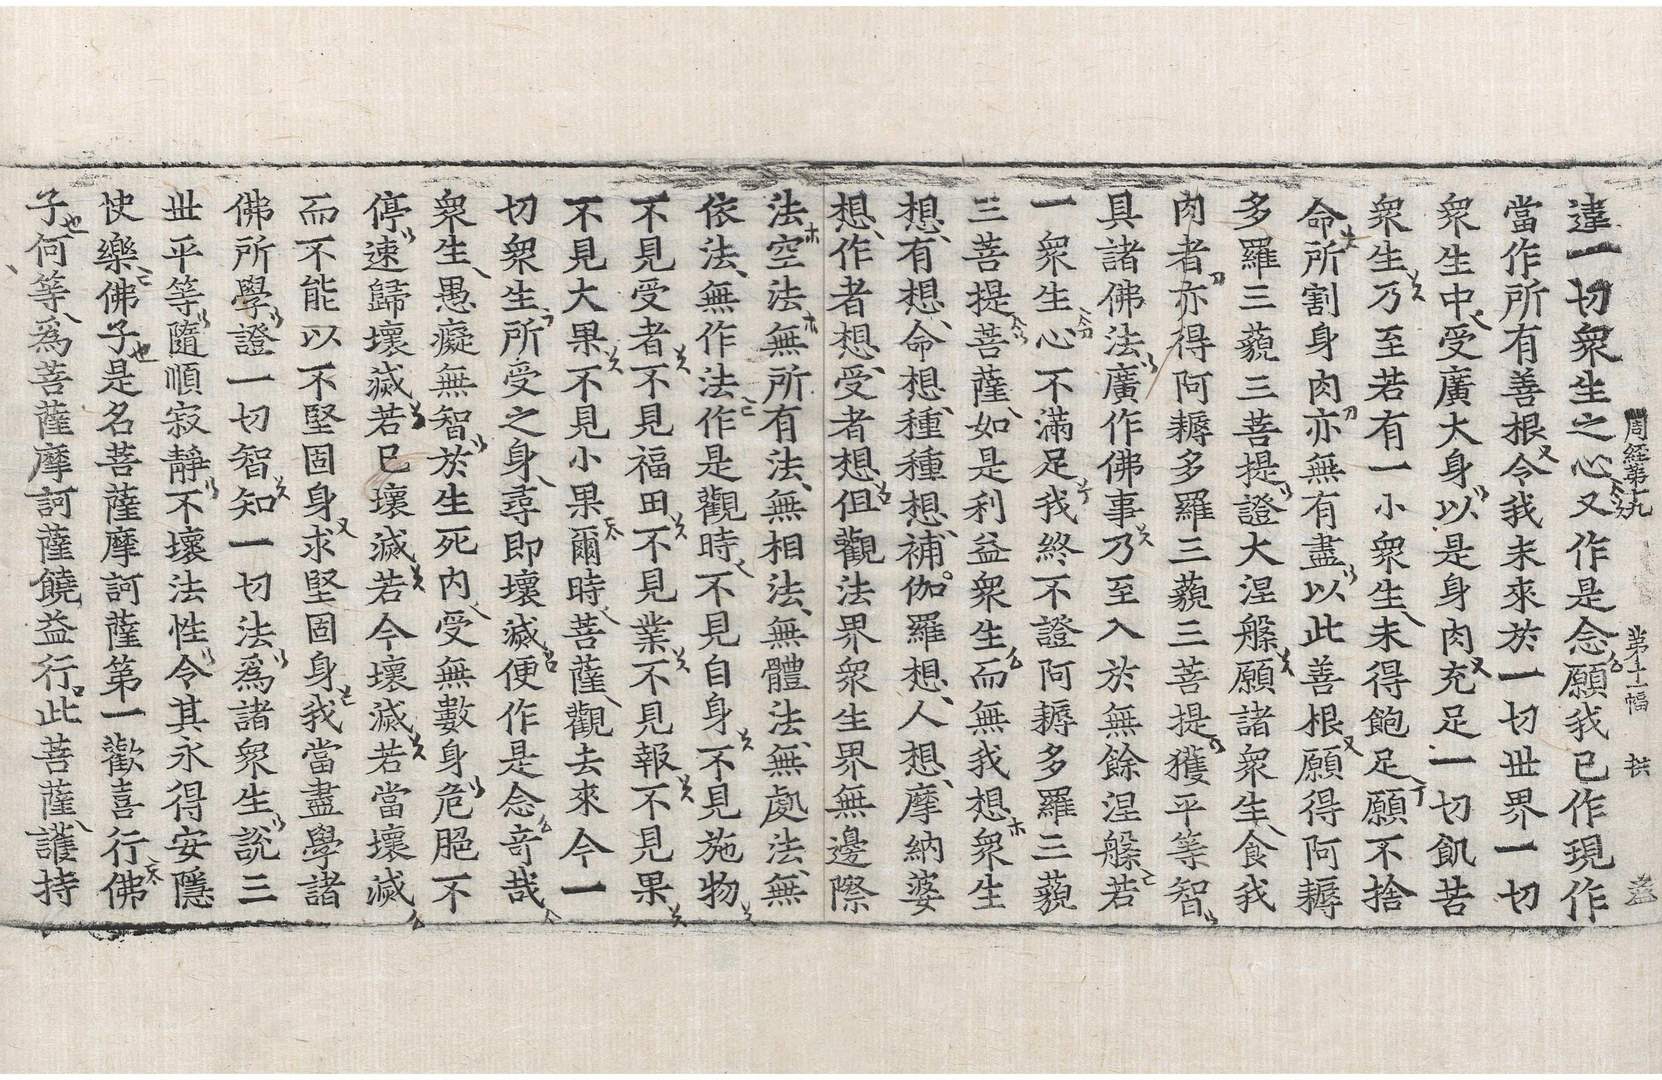 周經第十九　第十二幅
違一切衆生之心又作是念願我已作現作
當作所有善根令我未來於一切世界一切
衆生中受廣大身以是身肉充足一切飢苦
衆生乃至若有一小衆生未得飽足願不捨
命所割身肉亦無有盡以此善根願得阿耨
多羅三藐三菩提證大涅槃願諸衆生食我
肉者亦得阿耨多羅三藐三菩提獲平等智
具諸佛法廣作佛事乃至入於無餘涅槃若
一衆生心不滿足我終不證阿耨多羅三藐
三菩提菩薩如是利益衆生而無我想衆生
想有想命想種種想補伽羅想人想摩納婆
想作者想受者想但觀法界衆生界無邊際
法空法無所有法無相法無體法無處法無
依法無作法作是觀時不見自身不見施物
不見受者不見福田不見業不見報不見果
不見大果不見小果爾時菩薩觀去來今一
切衆生所受之身尋即壞滅便作是念奇哉
衆生愚癡無智於生死内受無數身危脆不
停速歸壞滅若已壞滅若今壞滅若當壞滅
而不能以不堅固身求堅固身我當盡學諸
佛所學證一切智知一切法爲諸衆生說三
世平等隨順寂靜不壞法性令其永得安隱
快樂佛子是名菩薩摩訶薩第一歡喜行佛
子何等爲菩薩摩訶薩饒益行此菩薩護持